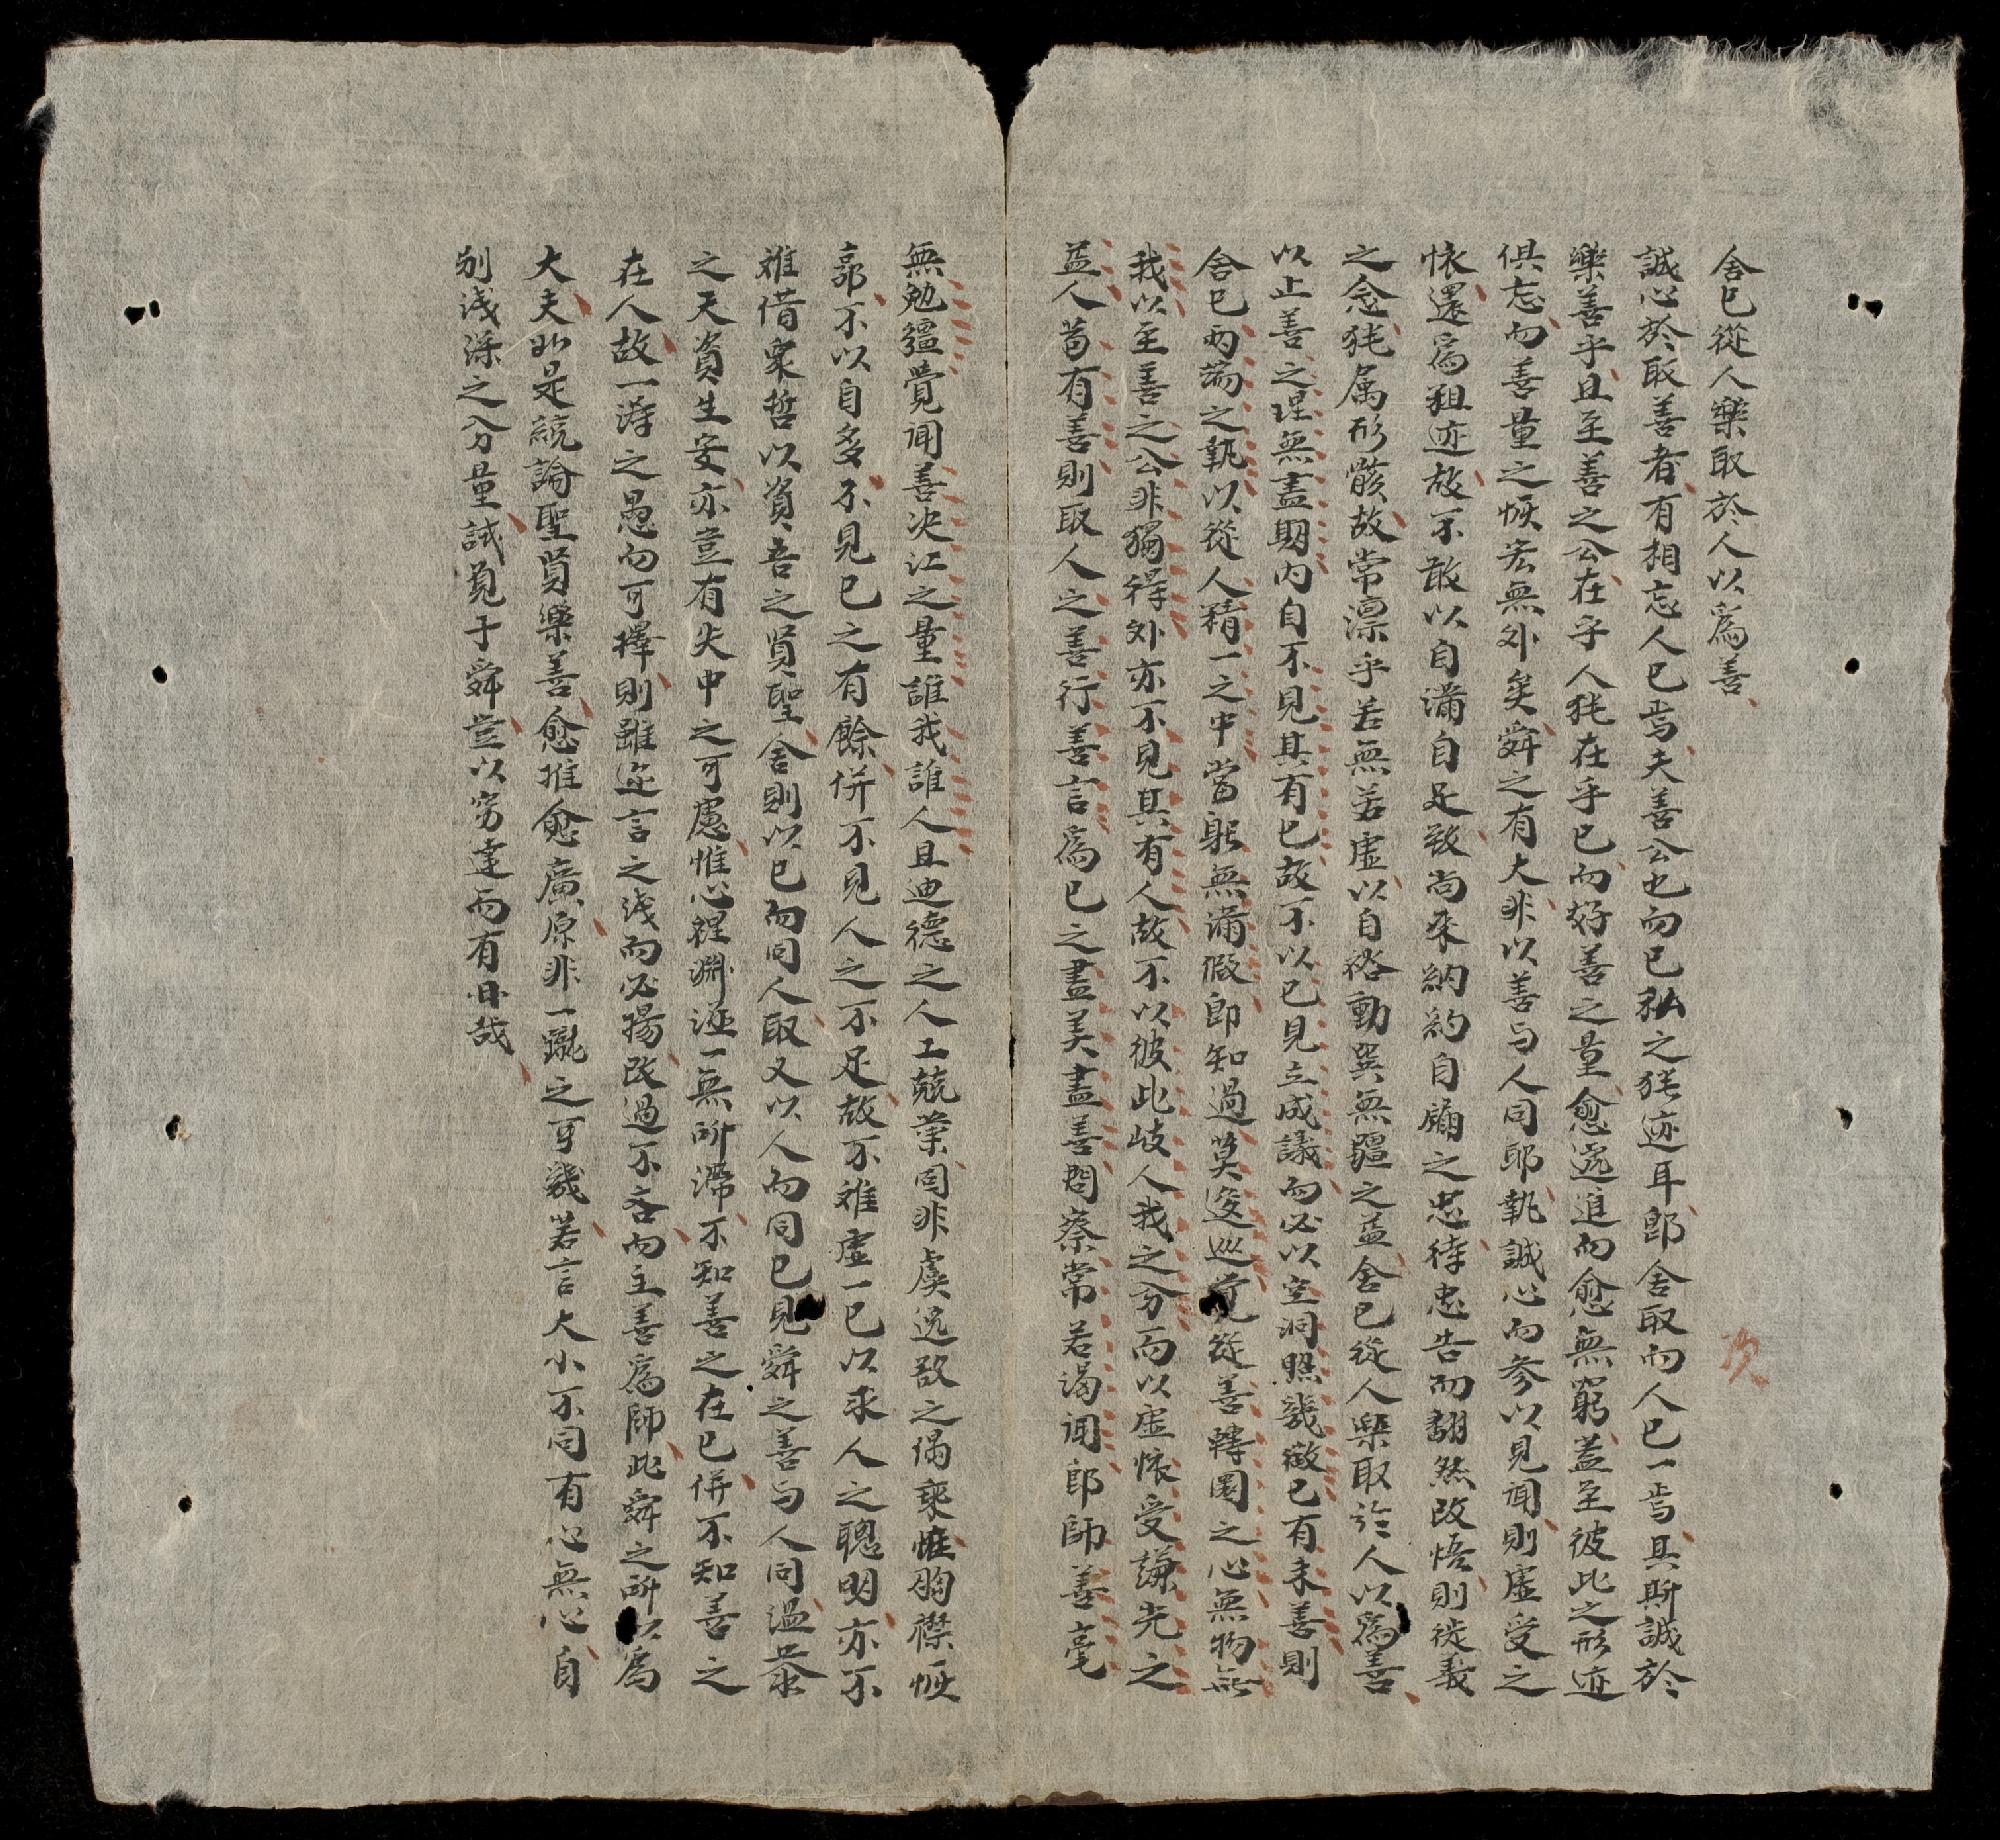 舍己從人樂取於人以爲善
誠心於取善者有相忘人己焉夫善公也而己私之猶迹耳即舍取而人己一焉其斯誠於
樂善乎且至善之公在乎人猶在乎己而好善之量愈遠進而愈無窮蓋至彼此之形迹
俱忘而善量之恢宏無外矣舜之有大非以善与人同耶執誠心而参以見聞則虚受之
懷還爲粗迹故不敢以自滿自足致尚来納約自牖之忠待忠告而翻然改悟則徙義
之念猶属形骸故常凛乎若無若虚以自裕動巽無疆之益舍己從人樂取於人以爲善
以止善之理無盡期内自不見其有己故不以己見立成議而必以空洞照幾微己有未善則
舍己两端之執以從人精一之中當躬無滿假即知過莫逡巡從善轉圜之心無物無
我以至善之公非獨得外亦不見其有人故不以彼此岐人我之分而以虚懷受謙光之
益人苟有善則取人之善行善言爲己之盡美盡善問察常若渴聞即師善毫
無勉彊覺聞善决江之量誰我誰人且迪德之人工兢業同非虞逸欲之偶乘惟胸襟恢
郭不以自多不見己之有餘併不見人之不足故不难虚一己以求人之聰明亦不
难借衆哲以資吾之賢聖舍則以己而同人取又以人而同己見舜之善与人同温恭
之天資生安亦豈有失中之可慮惟心裎渊涵一無所滯不知善之在己併不知善之
在人故一淂之愚而可擇則雖迩言之浅而必揚改過不吝而主善爲師此舜之所以爲
大夫如是統論聖賢樂善愈推愈廣原非一蹴之可幾若言大小不同有心無心自
别浅深之分量誠覓于舜豈以穷達而有异哉